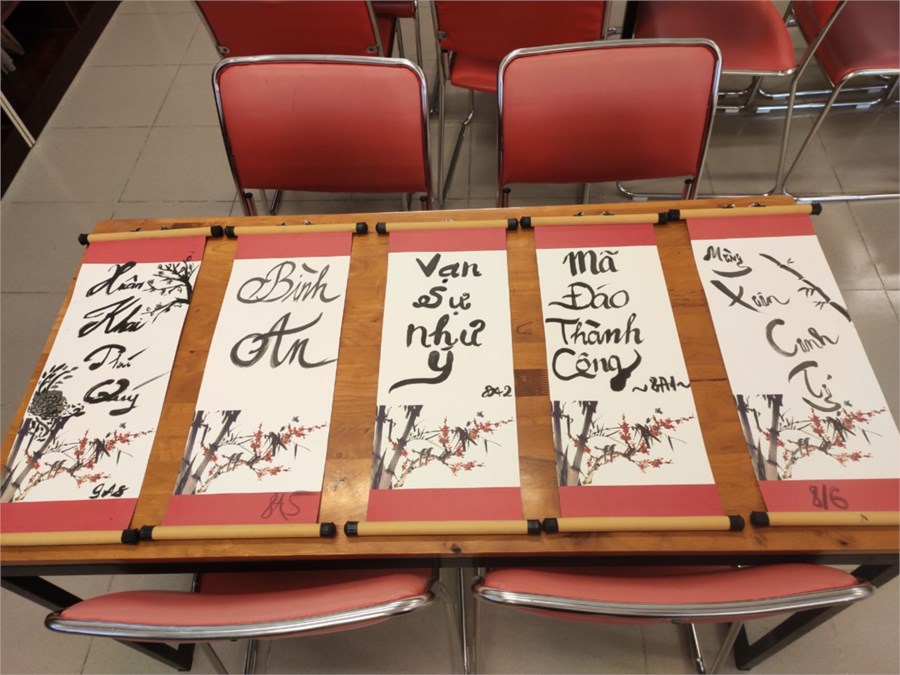 Xuân
Khai
Phú
Quý
9A8
Bình
An
8A5
Vạn
Sự
như
ý
8A2
Mã
Đáo
Thành
Công
~8A1~
Mừng
Xuân
Canh
Tý
8/6